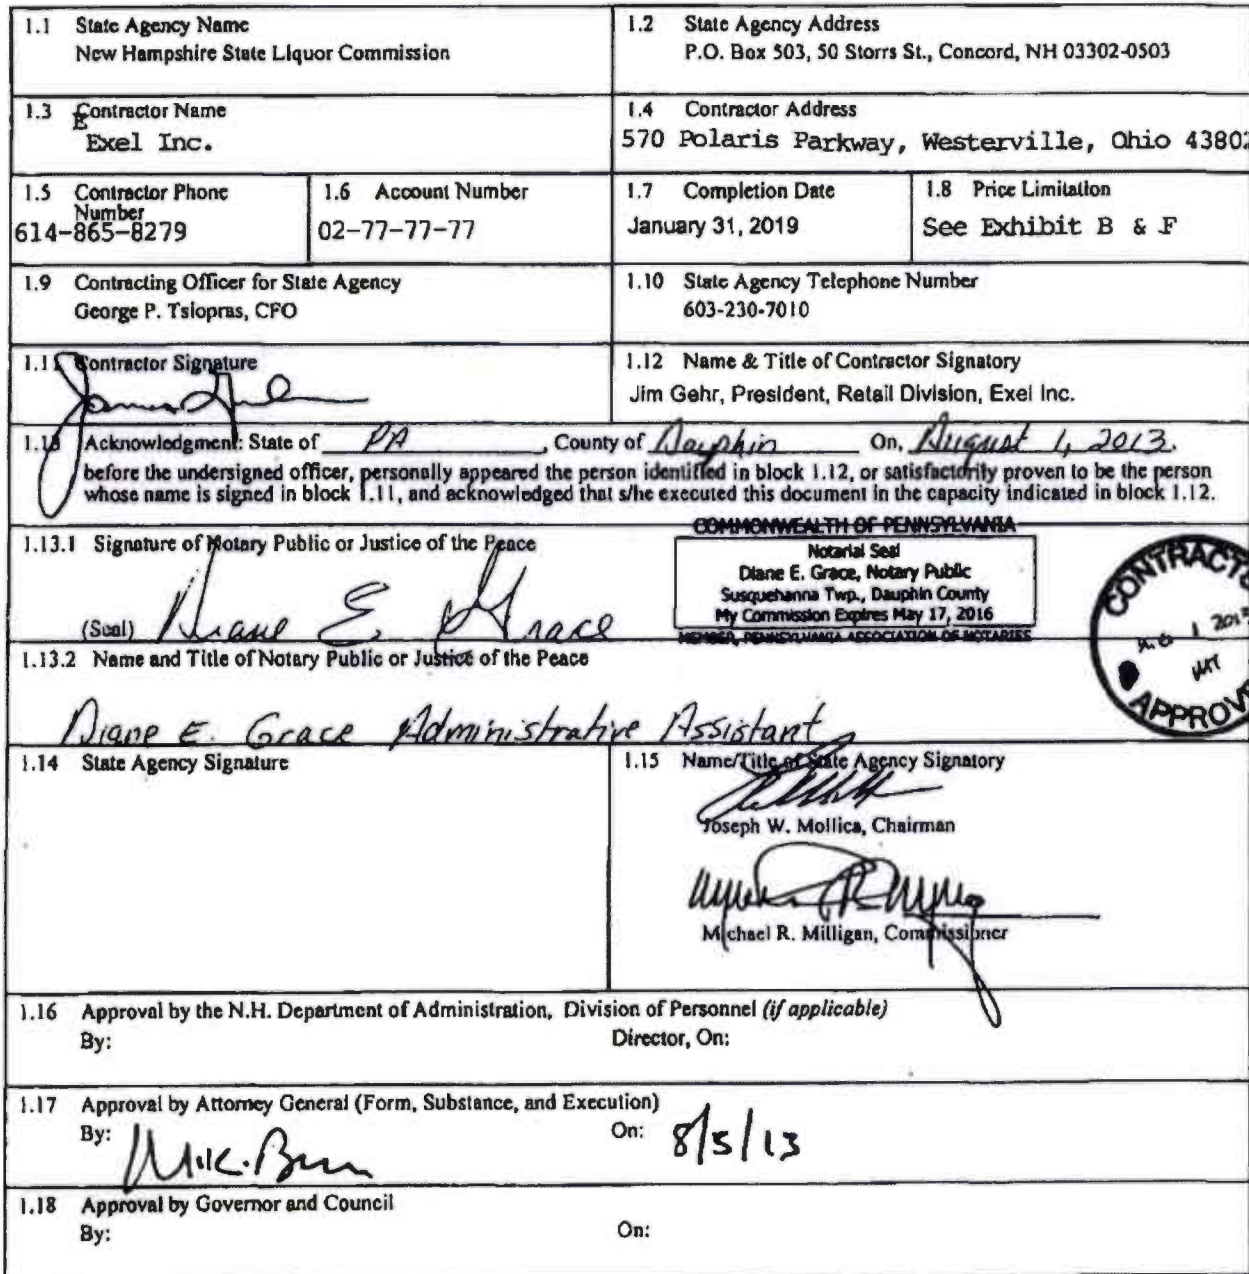 1.1 State Agency Name
New Hampshire State Liquor Commission
1.2 State Agency Address
P.O. Box 503, 50 Storrs St., Concord, NH 03302-0503
1.3 Contractor Name
E
Exel Inc.
1.4 Contractor Address
570 Polaris Parkway, Westerville, Ohio 43802
1.5 Contractor Phone
Number
614-865-8279
1.6 Account Number
02-77-77-77
1.7 Completion Date
January 31, 2019
1.8 Price Limitation
See Exhibit B & F
1.9 Contracting Officer for State Agency
George P. Tsiopras, CFO
1.10 State Agency Telephone Number
603-230-7010
1.11 Contractor Signature
1.12 Name & Title of Contractor Signatory
Jim Gehr, President, Retail Division, Exel Inc.
1.13 Acknowledgment: State of PA, County of Dauphin On, August 1, 2013.
before the undersigned officer, personally appeared the person identified in block 1.12, or satisfactorily proven to be the person
whose name is signed in block 1.11, and acknowledged that s/he executed this document in the capacity indicated in block 1.12.
1.13.1 Signature of Notary Public or Justice of the Peace
(Seal) Diane E. Grace
COMMONWEALTH OF PENNSYLVANIA
Notarial Seal
Diane E. Grace, Notary Public
Susquehanna Twp., Dauphin County
My Commission Expires May 17, 2016
MEMBER, PENNSYLVANIA ASSOCIATION OF NOTARIES
CONTRACTS
1 2013
APPROV
1.13.2 Name and Title of Notary Public or Justice of the Peace
Diane E. Grace Administrative Assistant
1.14 State Agency Signature
1.15 Name/Title of State Agency Signatory
Joseph W. Mollica, Chairman
Michael R. Milligan, Commissioner
1.16 Approval by the N.H. Department of Administration, Division of Personnel (if applicable)
By: Director, On:
1.17 Approval by Attorney General (Form, Substance, and Execution)
By: On: 8/5/13
1.18 Approval by Governor and Council
By: On: